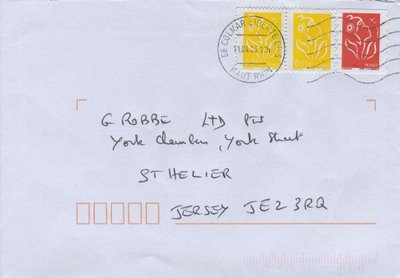 68 COLMAR
HAUT RHIN
0,01
FRANCE
G ROBBE LTD
York Chambers, York Street
ST HELIER
JERSEY JE2 3RQ